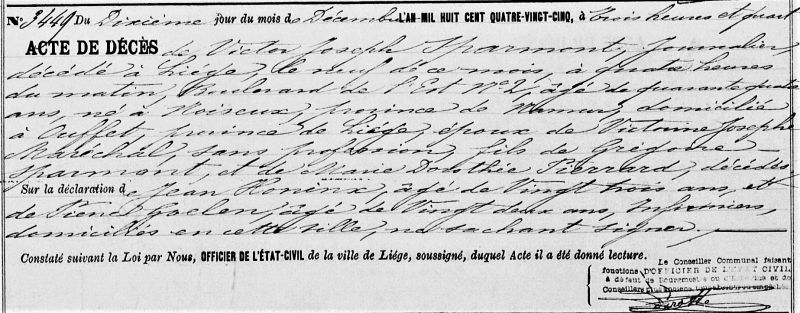 No. 3449 Du Dixième jour du mois de Décembre L'AN MIL HUIT CENT QUATRE-VINGT-CINQ, à trois heures et quart
ACTE DE DÉCÈS de Victor Joseph Sparmont, journalier
décédé à Liége, le neuf de ce mois, à quatre heures
du matin, Boulevard de l'Est No 2, âgé de quarante quatre
ans, né à Noiseux, province de Namur, domicilié
à Ouffet, province de Liége, époux de Victorine Josephe
Maréchal, sans profession, fils de Grégoire
Sparmont, et de Marie Dorothée Pierrard, décédés,
Sur la déclaration de Jean Koninx, âgé de Vingt trois ans, et
de Pierre Goclen, âgé de Vingt deux ans, Infirmiers,
domiciliés en cette ville, ne sachant signer.
Constaté suivant la Loi par Nous, OFFICIER DE L'ÉTAT-CIVIL de la ville de Liége, soussigné, duquel Acte il a été donné lecture.
Le Conseiller Communal faisant
fonctions D'OFFICIER DE L'ÉTAT CIVIL,
à défaut de Bourgmestre ou d'Échevins et de
Conseillers plus anciens